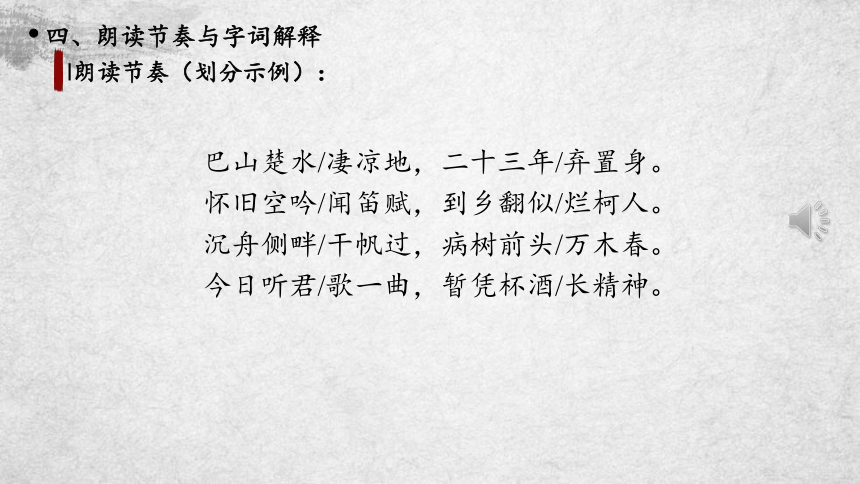 • 四、朗读节奏与字词解释
|朗读节奏（划分示例）：
巴山楚水/凄凉地，二十三年/弃置身。
怀旧空吟/闻笛赋，到乡翻似/烂柯人。
沉舟侧畔/干帆过，病树前头/万木春。
今日听君/歌一曲，暂凭杯酒/长精神。